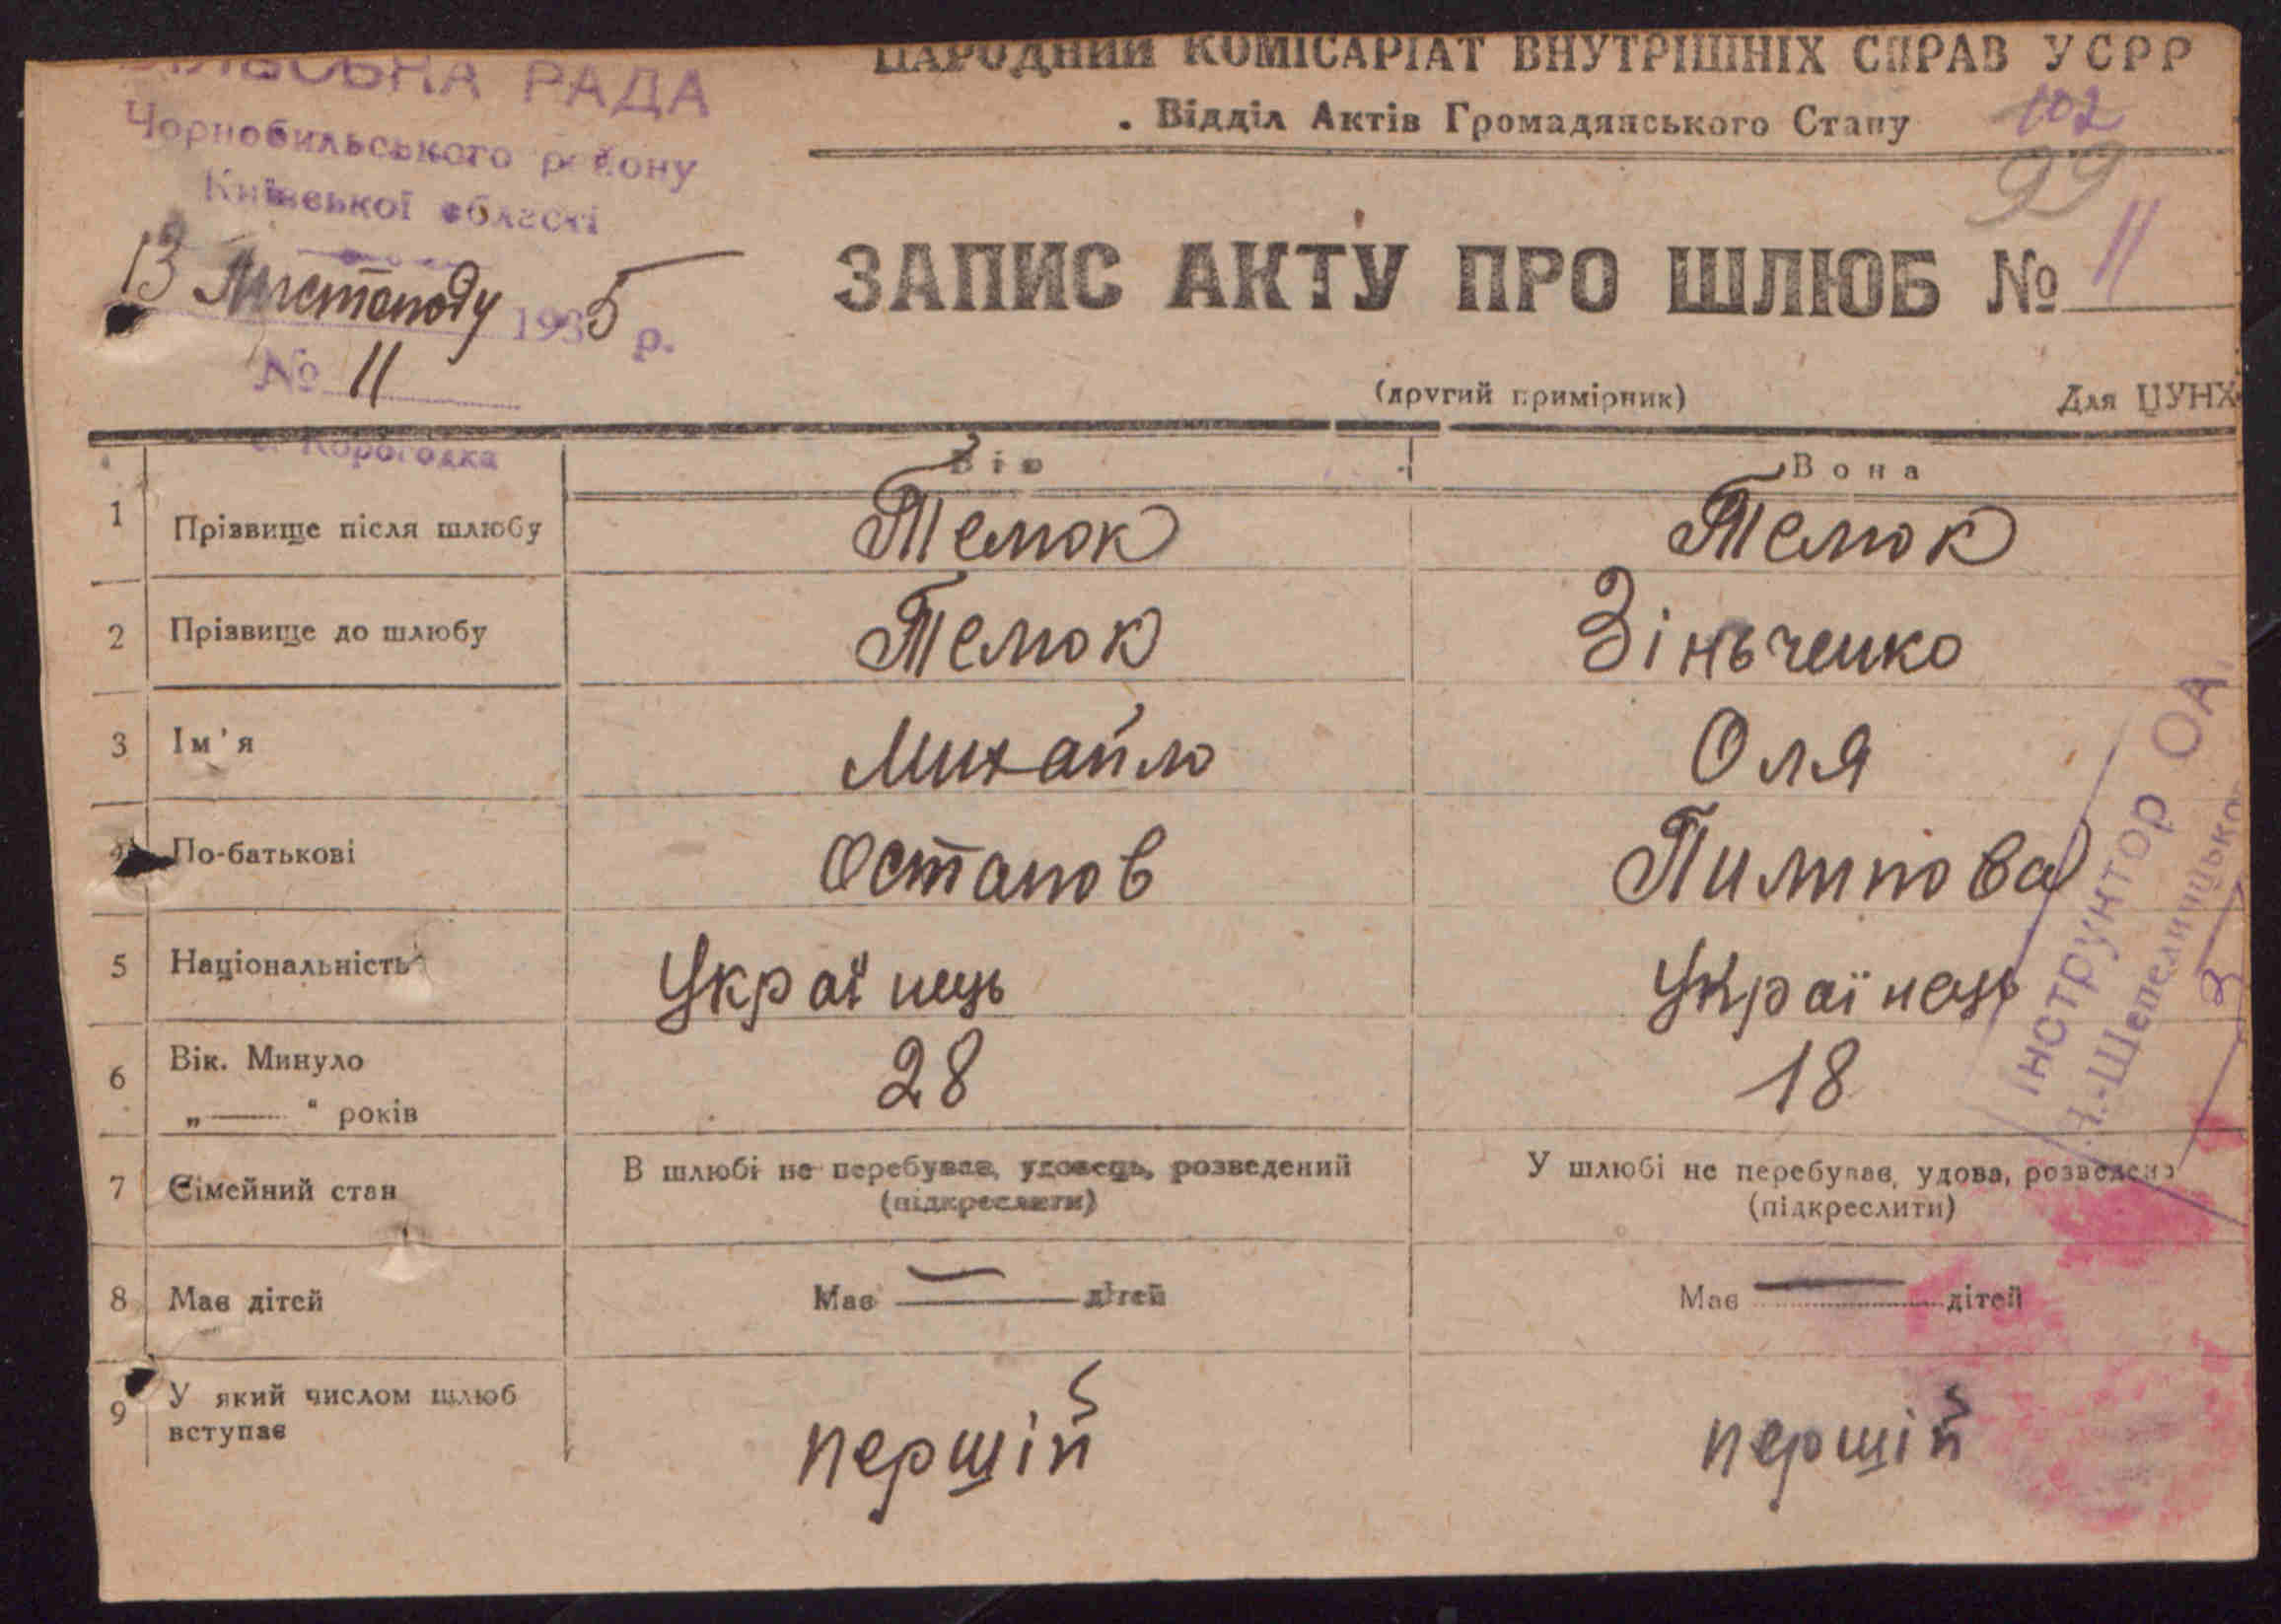 РАДА
Чорнобильського району
Київської області
13 Листопаду 1935 р.
№ 11
с. Корогодка
НАРОДНИЙ КОМІСАРІАТ ВНУТРІШНІХ СПРАВ УСРР
Відділ Актів Громадянського Стану
102
99
ЗАПИС АКТУ ПРО ШЛЮБ № 11
(другий примірник) Для ЦУНХ
Він Вона
1 Прізвище після шлюбу Темок Темок
2 Прізвище до шлюбу Темок Зіньченко
3 Ім'я Михайло Оля
По-батькові Остапов Пилипова
5 Національність Українець Українець
6 Вік. Минуло 28 18
„——“ років
7 Сімейний стан В шлюбі не перебував, удовець, розведений У шлюбі не перебував, удова, розведена
(підкреслити) (підкреслити)
8 Має дітей Має — дітей Має — дітей
9 У який числом шлюб вступає першій першій
Інструктор ОА
Н.-Шепелицько